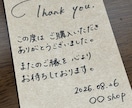 Thank you.
この度は ご購入いただき
ありがとうございました。
またのご縁を 心より
お待ちしております
2026.08.06
〇〇shop